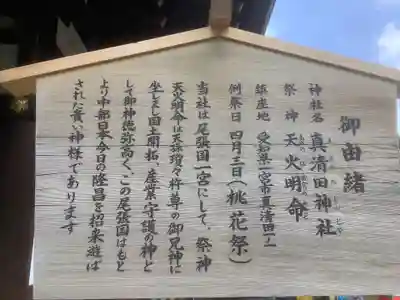 御由緒
神社名 真清田神社
ますみだじんじゃ
祭神 天火明命
あめのほあかりのみこと
鎮座地 愛知県一宮市真清田一ノ一
例祭日 四月三日(桃花祭)
当社は尾張国一宮にして、祭神
天火明命は天孫瓊々杵尊の御兄神に
坐しまし国土開拓、産業守護の神と
して御神徳弥高く、この尾張国はもと
より中部日本今日の隆昌を招来遊ば
された貴い神様であります